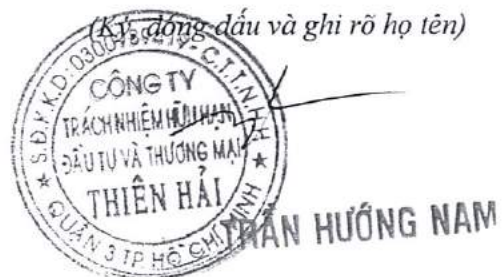 (Ký, đóng dấu và ghi rõ họ tên)
S.Đ.K.K.D: - C.T.T.N.H.H
CÔNG TY
TRÁCH NHIỆM HỮU HẠN
ĐẦU TƯ VÀ THƯƠNG MẠI
THIÊN HẢI
QUẬN 3 TP. HỒ CHÍ MINH
TRẦN HƯỚNG NAM